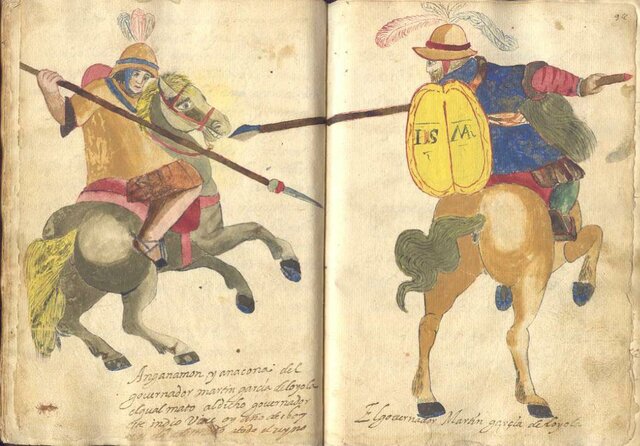 94
IHS MA
Anganamon yanacona del
governador martin garcia de loyola
el qual mato al dicho governador
este indio vive oy año de
todo el reyno
El governador Martin garcia de loyola